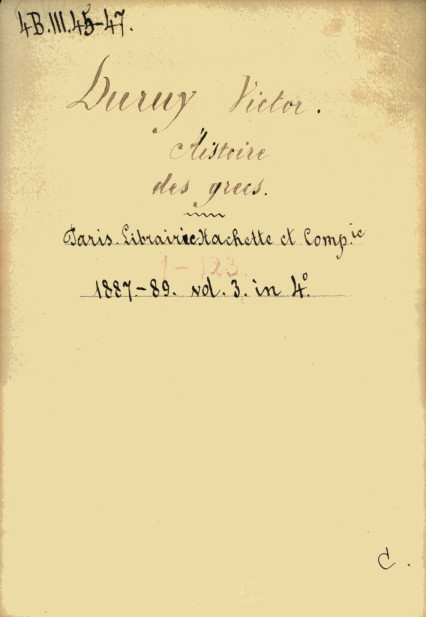 4B.III.45-47.
Duruy Victor.
Histoire
des grecs.
Paris. Librairie Hachette et Comp.ie
1-123.
1887.-89. vol. 3. in 4.º
C.